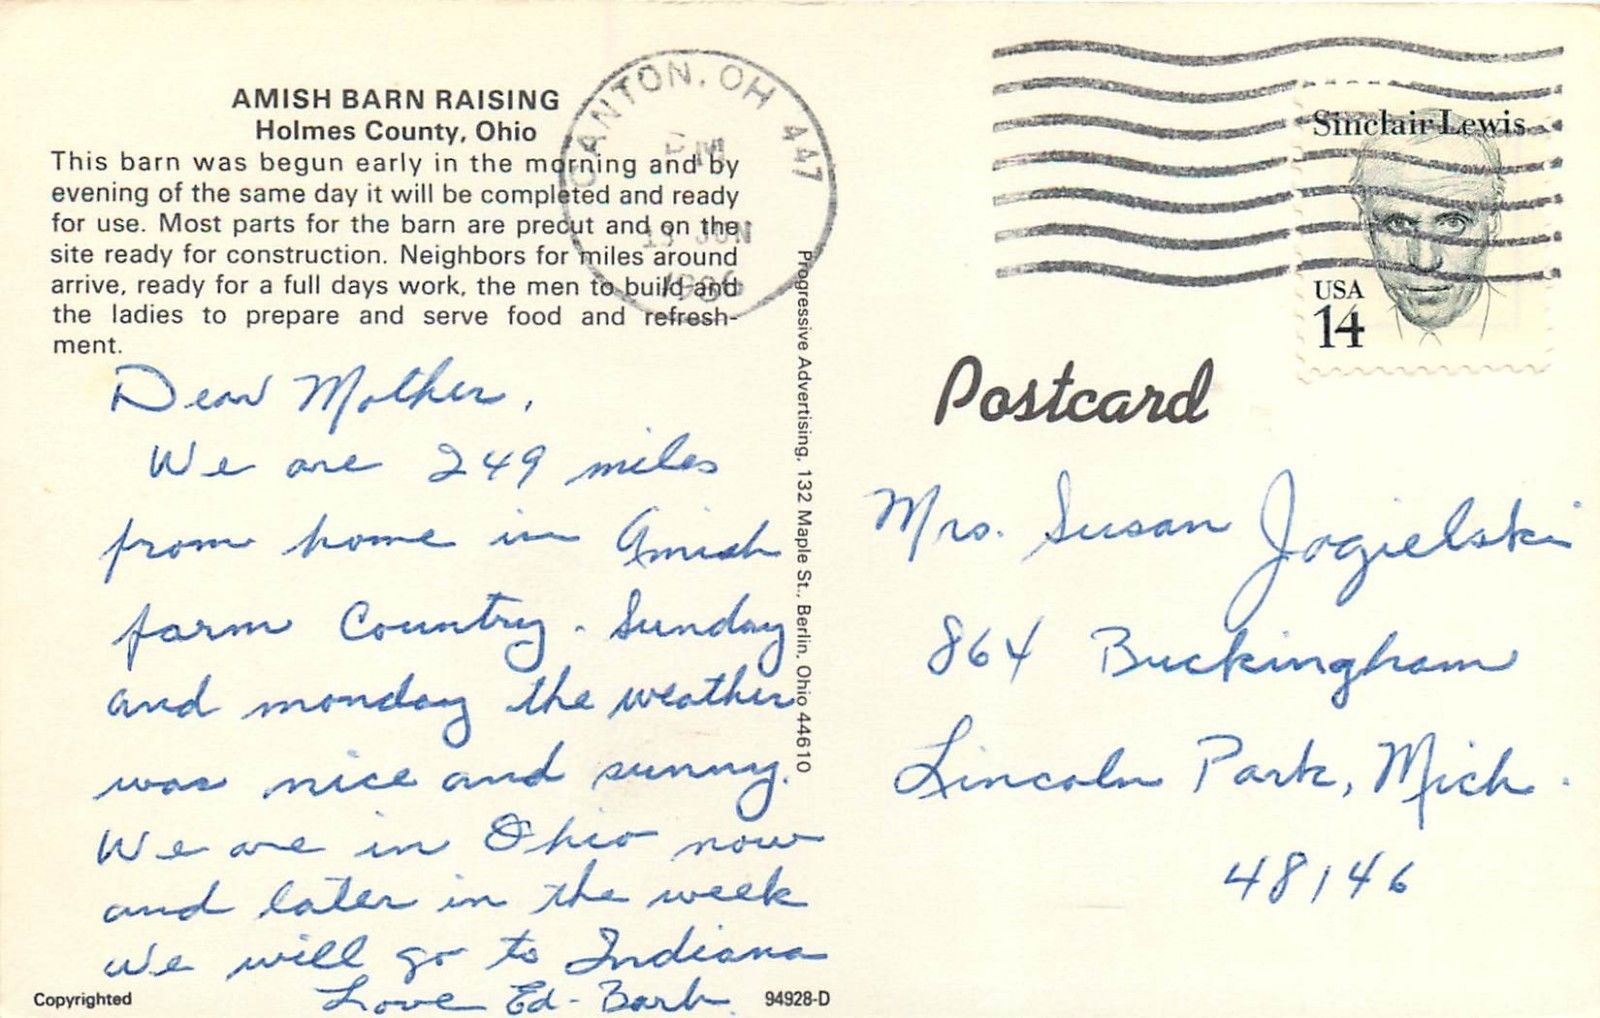 AMISH BARN RAISING
Holmes County, Ohio
This barn was begun early in the morning and by
evening of the same day it will be completed and ready
for use. Most parts for the barn are precut and on the
site ready for construction. Neighbors for miles around
arrive, ready for a full days work, the men to build and
the ladies to prepare and serve food and refresh-
ment.
CANTON, OH 447
PM
JUN
Dear Mother,
We are 249 miles
from home in Amish
farm Country. Sunday
and monday the weather
was nice and sunny.
We are in Ohio now
and later in the week
we will go to Indiana
Love Ed - Barb
Copyrighted
94928-D
Progressive Advertising, 132 Maple St., Berlin, Ohio 44610
Sinclair Lewis
USA
14
Postcard
Mrs. Susan Jogielski
864 Buckingham
Lincoln Park, Mich.
48146